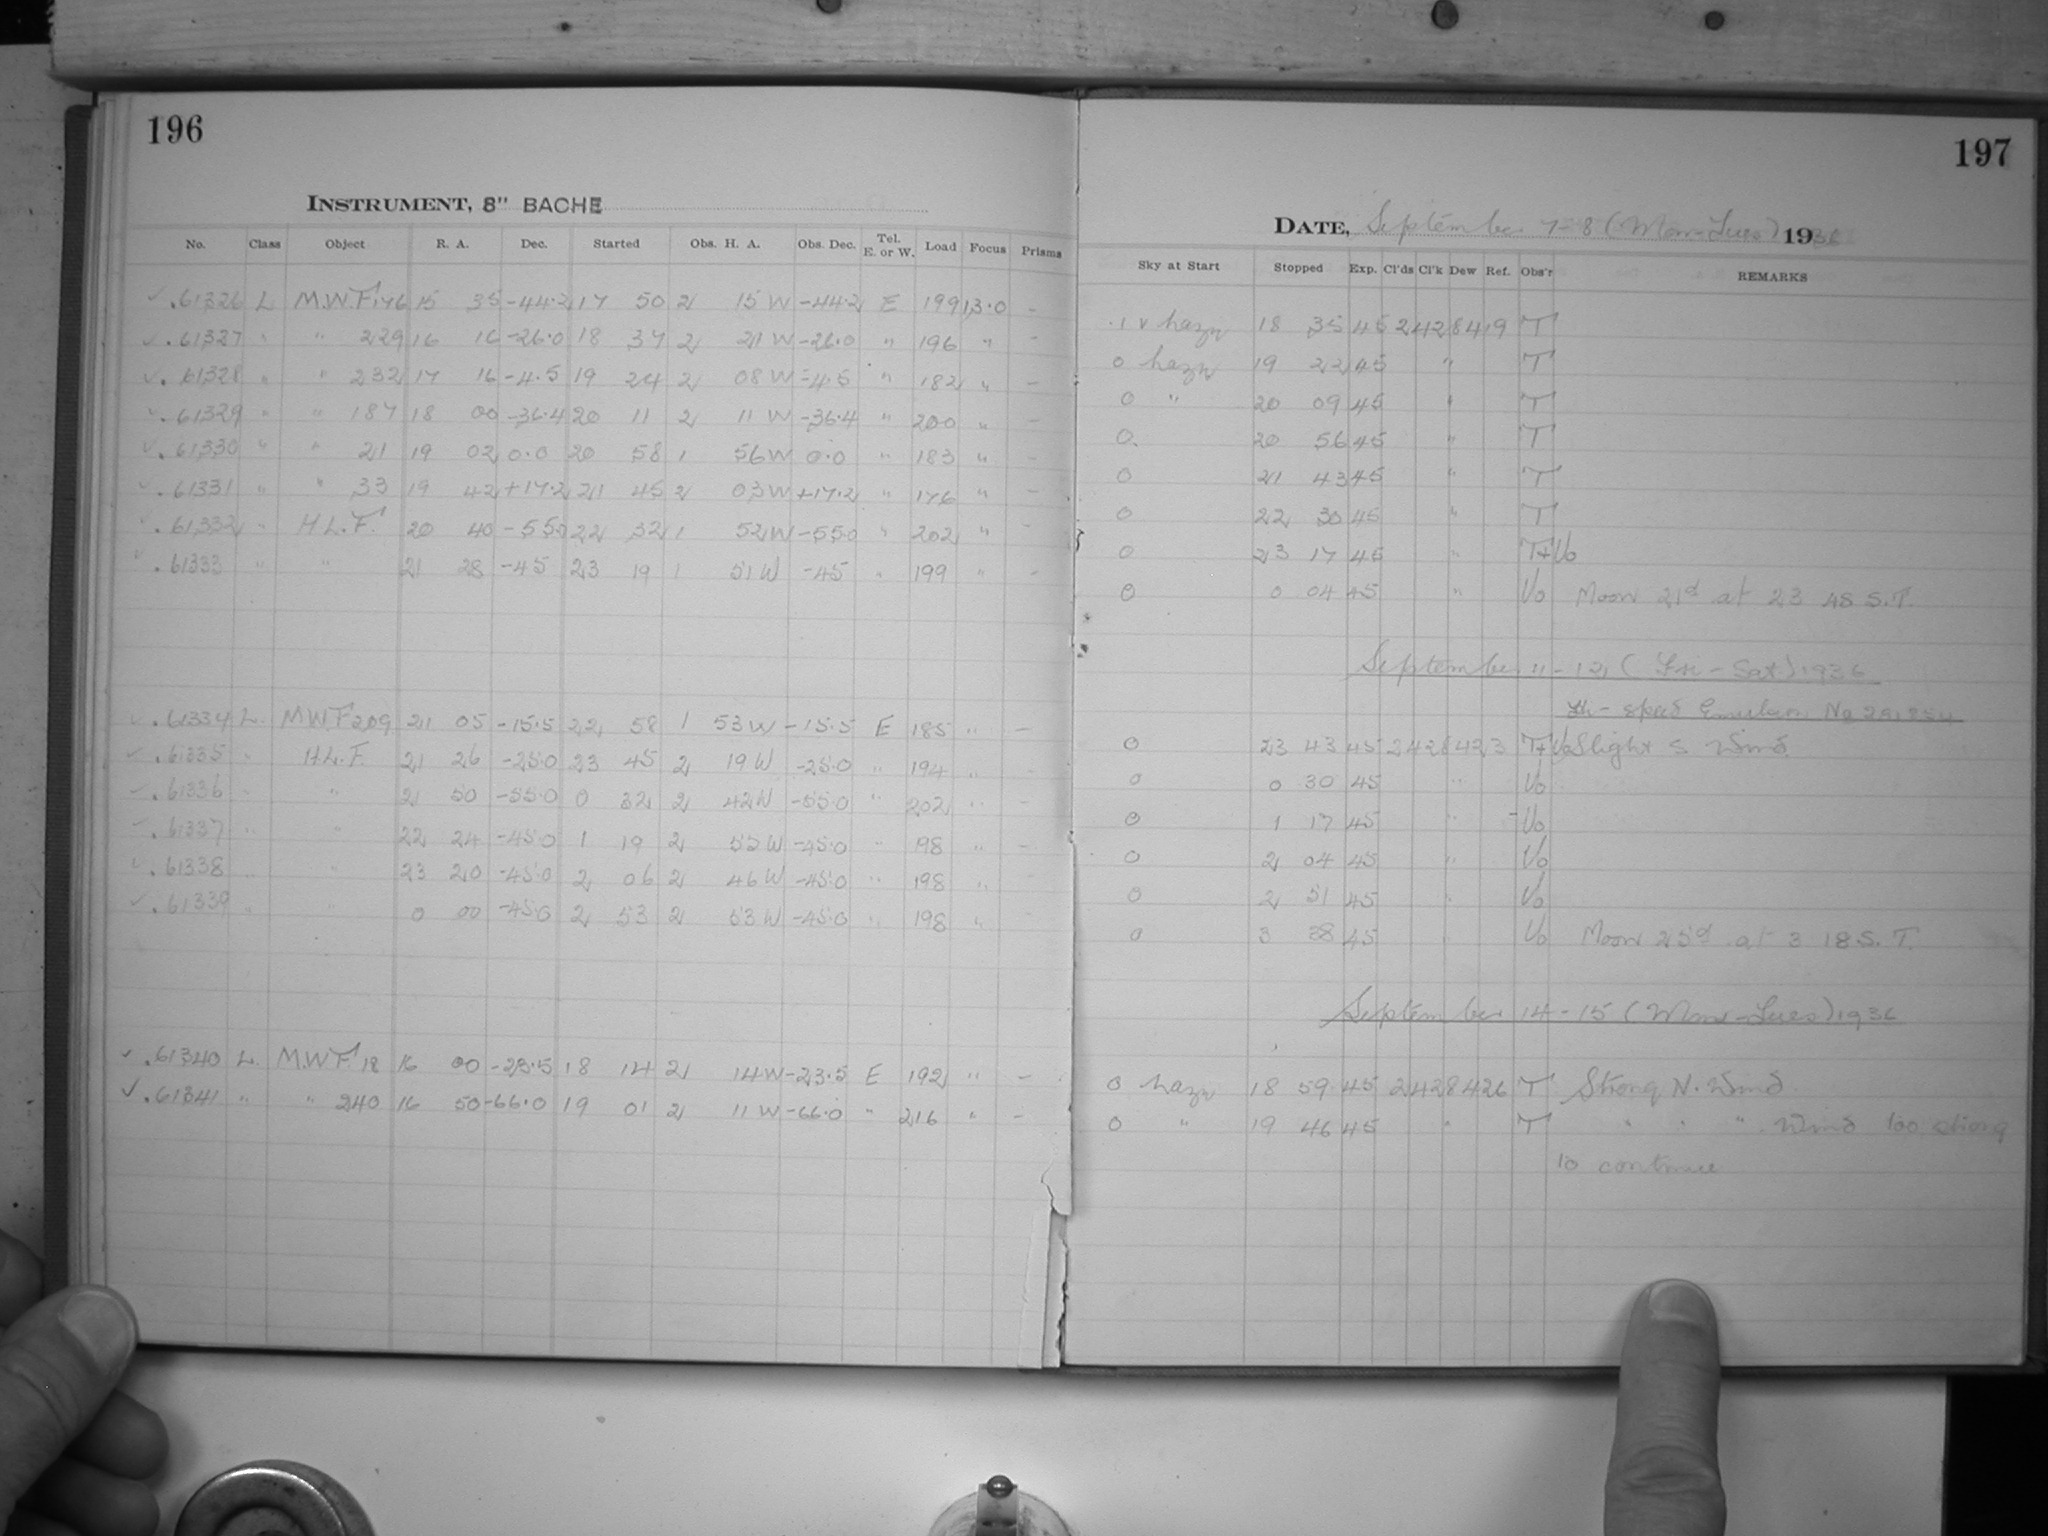 196
INSTRUMENT, 8" BACHE
No. Class Object R. A. Dec. Started Obs. H. A. Obs. Dec. Tel. E. or W. Load Focus Prisms
✓ .61326 L M.W.F.176 15 35 -44.2 17 50 2 15 W -44.2 E 199 13.0 -
✓ .61327 " " 229 16 16 -26.0 18 37 2 21 W -26.0 " 196 " -
✓ .61328 " " 232 17 16 -4.5 19 24 2 08 W -4.5 " 182 " -
✓ .61329 " " 187 18 00 -36.4 20 11 2 11 W -36.4 " 200 " -
✓ .61330 " " 21 19 02 0.0 20 58 1 56 W 0.0 " 183 " -
✓ .61331 " " 33 19 42 +17.2 21 45 2 03 W +17.2 " 176 " -
✓ .61332 " H.L.F. 20 40 -55.0 22 32 1 52 W -55.0 " 202 " -
✓ .61333 " " 21 28 -45 23 19 1 51 W -45 " 199 " -
✓ .61334 L. M.W.F.209 21 05 -15.5 22 58 1 53 W -15.5 E 185 " -
✓ .61335 " H.L.F. 21 26 -25.0 23 45 2 19 W -25.0 " 194 " -
✓ .61336 " " 21 50 -55.0 0 32 2 42 W -55.0 " 202 " -
✓ .61337 " " 22 24 -45.0 1 19 2 55 W -45.0 " 198 " -
✓ .61338 " " 23 20 -45.0 2 06 2 46 W -45.0 " 198 " -
✓ .61339 " " 0 00 -45.0 2 53 2 53 W -45.0 " 198 " -
✓ .61340 L. M.W.F.18 16 00 -23.5 18 14 2 14 W -23.5 E 192 " -
✓ .61341 " " 240 16 50 -66.0 19 01 2 11 W -66.0 " 216 " -
197
DATE, September 7-8 (Mon-Tues) 1936
Sky at Start Stopped Exp. Cl'ds Cl'k Dew Ref. Obs'r REMARKS
.1 v hazy 18 35 45 2428419 T
0 hazy 19 22 45 " T
0 " 20 09 45 " T
0. 20 56 45 " T
0 21 43 45 " T
0 22 30 45 " T
0 23 17 45 " T+Vo
0 0 04 45 " Vo Moon 21d at 23 48 S.T.
September 11-12 (Fri-Sat) 1936
speed Emulsion No
0 23 43 45 2428423 T+Vo Slight S Wind.
0 0 30 45 " Vo
0 1 17 45 " Vo
0 2 04 45 " Vo
0 2 51 45 " Vo
0 3 38 45 " Vo Moon 25d at 3 18 S.T.
September 14-15 (Mon-Tues) 1936
0 hazy 18 59 45 2428426 T Strong N. Wind
0 " 19 46 45 " T " " " Wind too strong
to continue